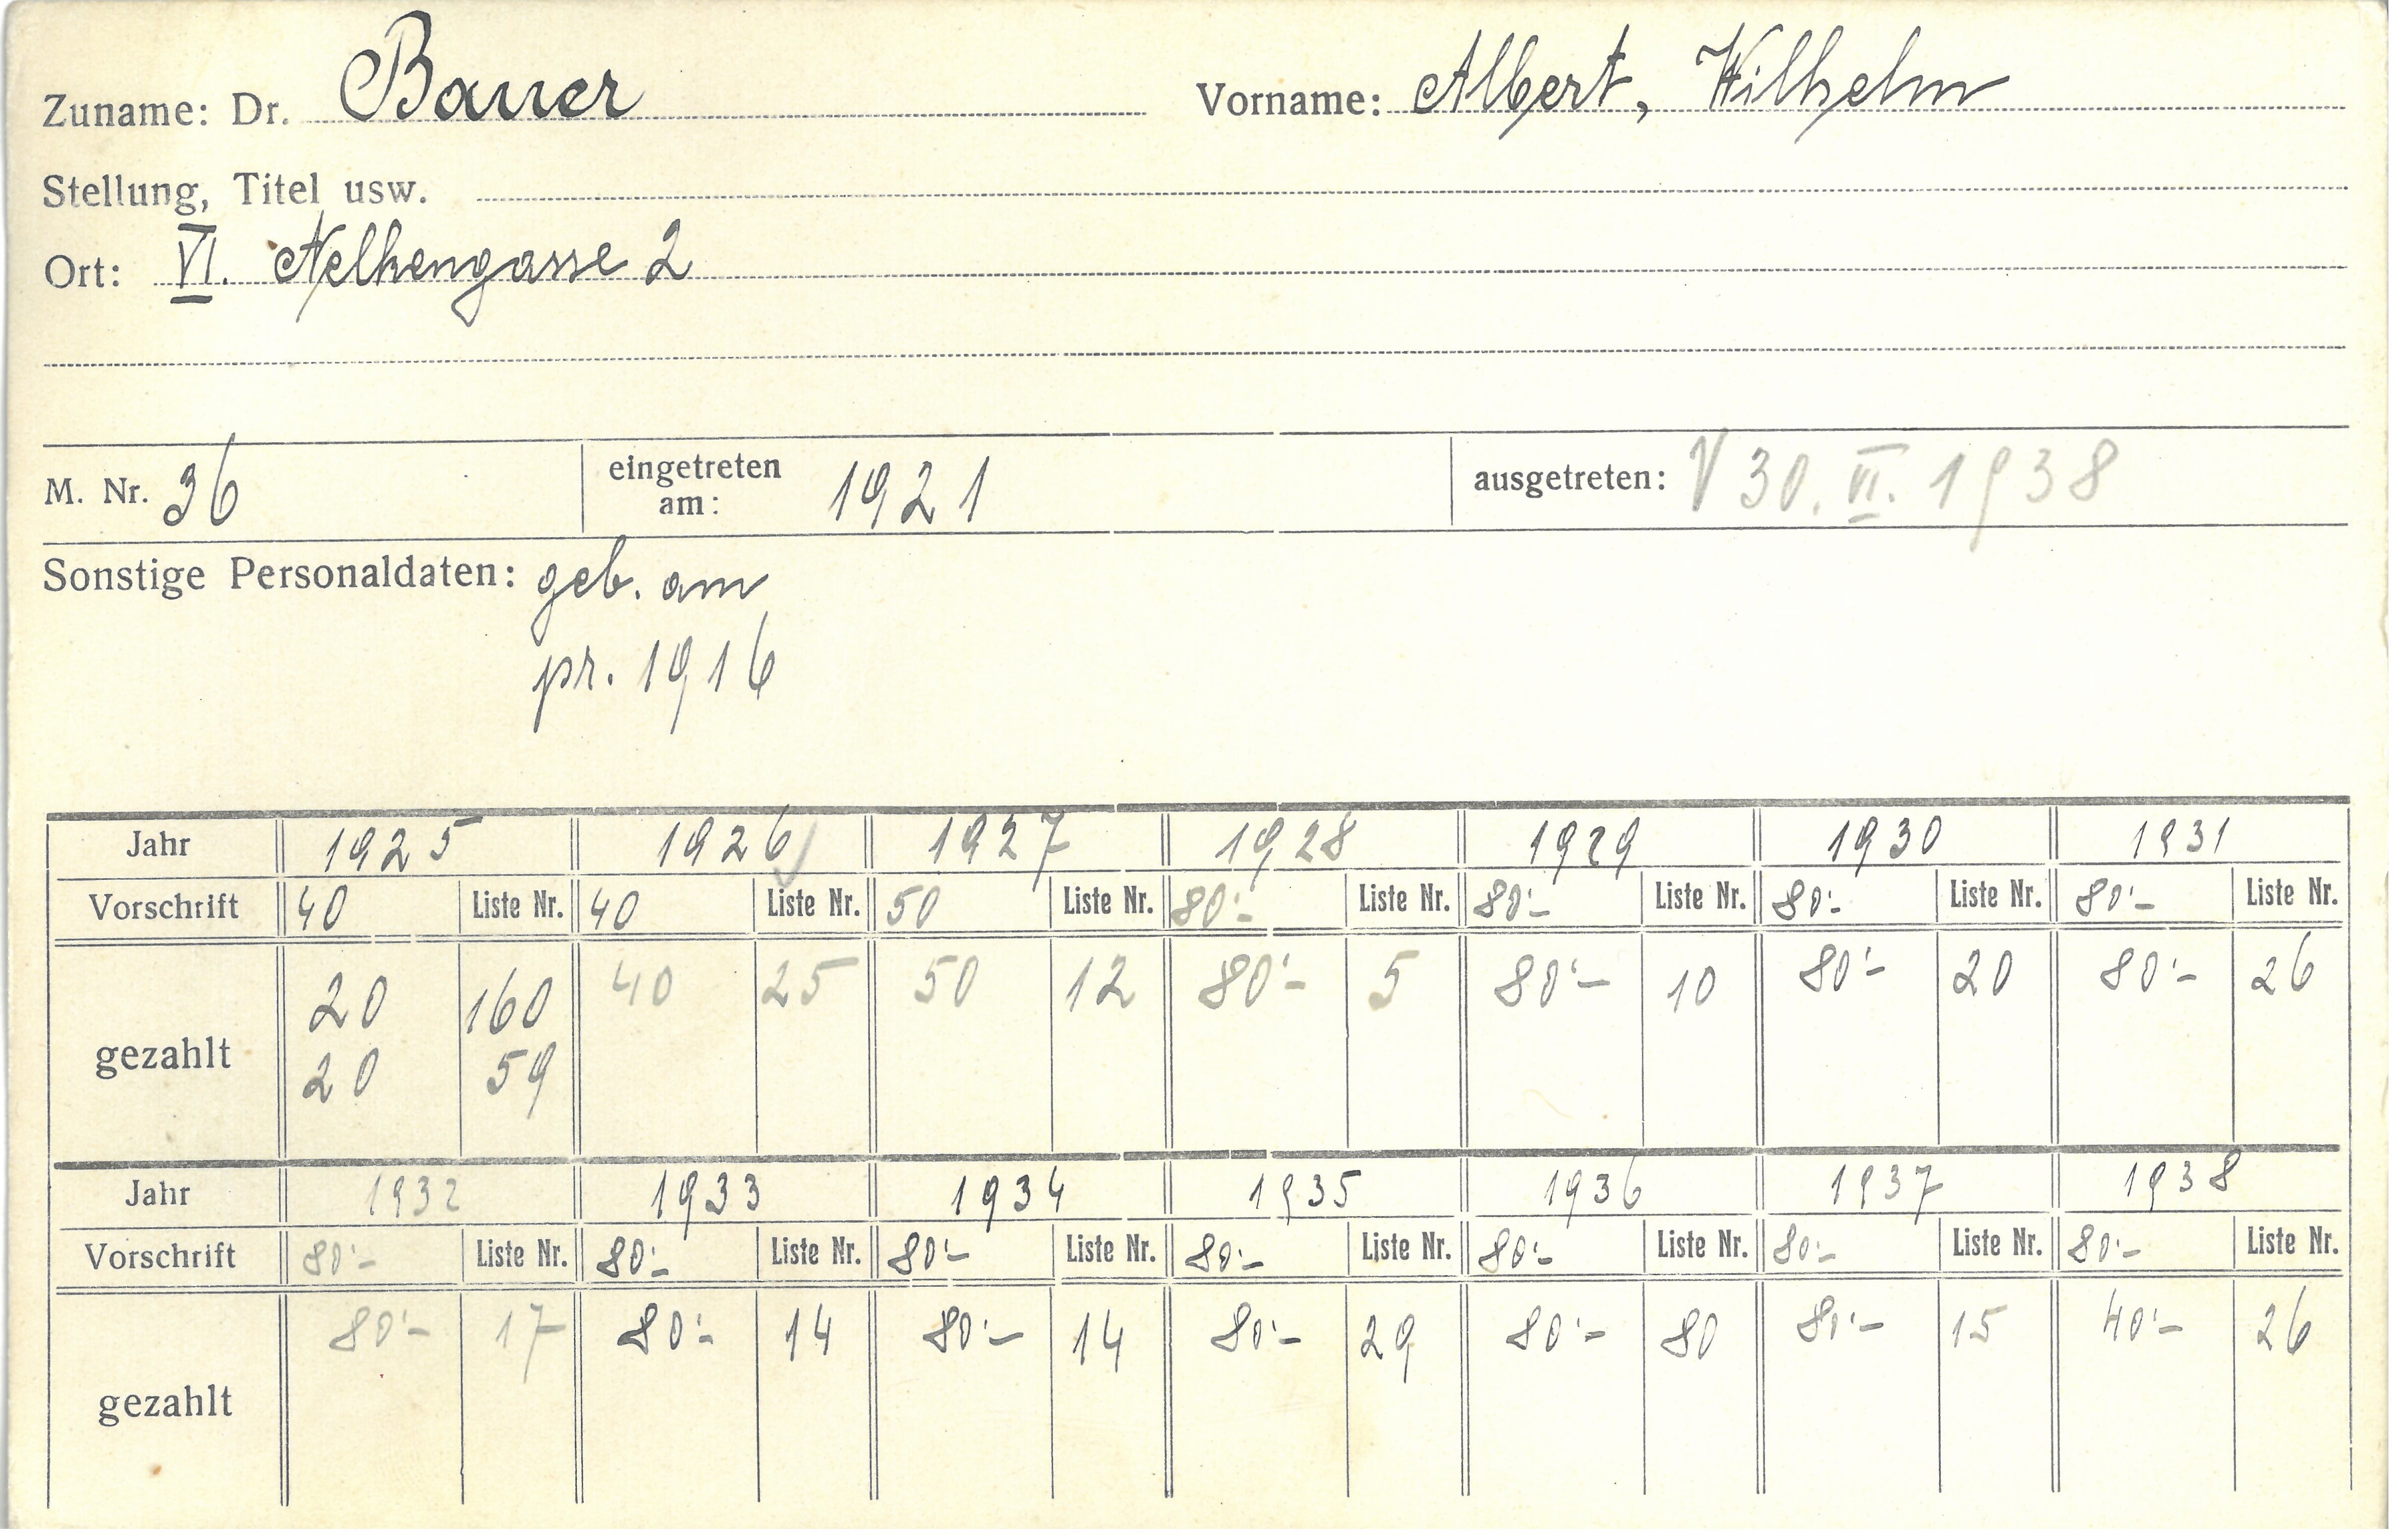 Zuname: Dr. Bauer Vorname: Albert, Wilhelm
Stellung, Titel usw.
Ort: VI. Nelkengasse 2
M. Nr. 36 eingetreten am: 1921 ausgetreten: V 30. VI. 1938
Sonstige Personaldaten: geb. am
pr. 1916
Jahr 1925 1926 1927 1928 1929 1930 1931
Vorschrift 40 Liste Nr. 40 Liste Nr. 50 Liste Nr. 80'- Liste Nr. 80'- Liste Nr. 80'- Liste Nr. 80'- Liste Nr.
20 160 40 25 50 12 80'- 5 80'- 10 80'- 20 80'- 26
gezahlt
20 59
Jahr 1932 1933 1934 1935 1936 1937 1938
Vorschrift 80'- Liste Nr. 80'- Liste Nr. 80'- Liste Nr. 80'- Liste Nr. 80'- Liste Nr. 80'- Liste Nr. 80'- Liste Nr.
80'- 17 80'- 14 80'- 14 80'- 29 80'- 80 80'- 15 40'- 26
gezahlt